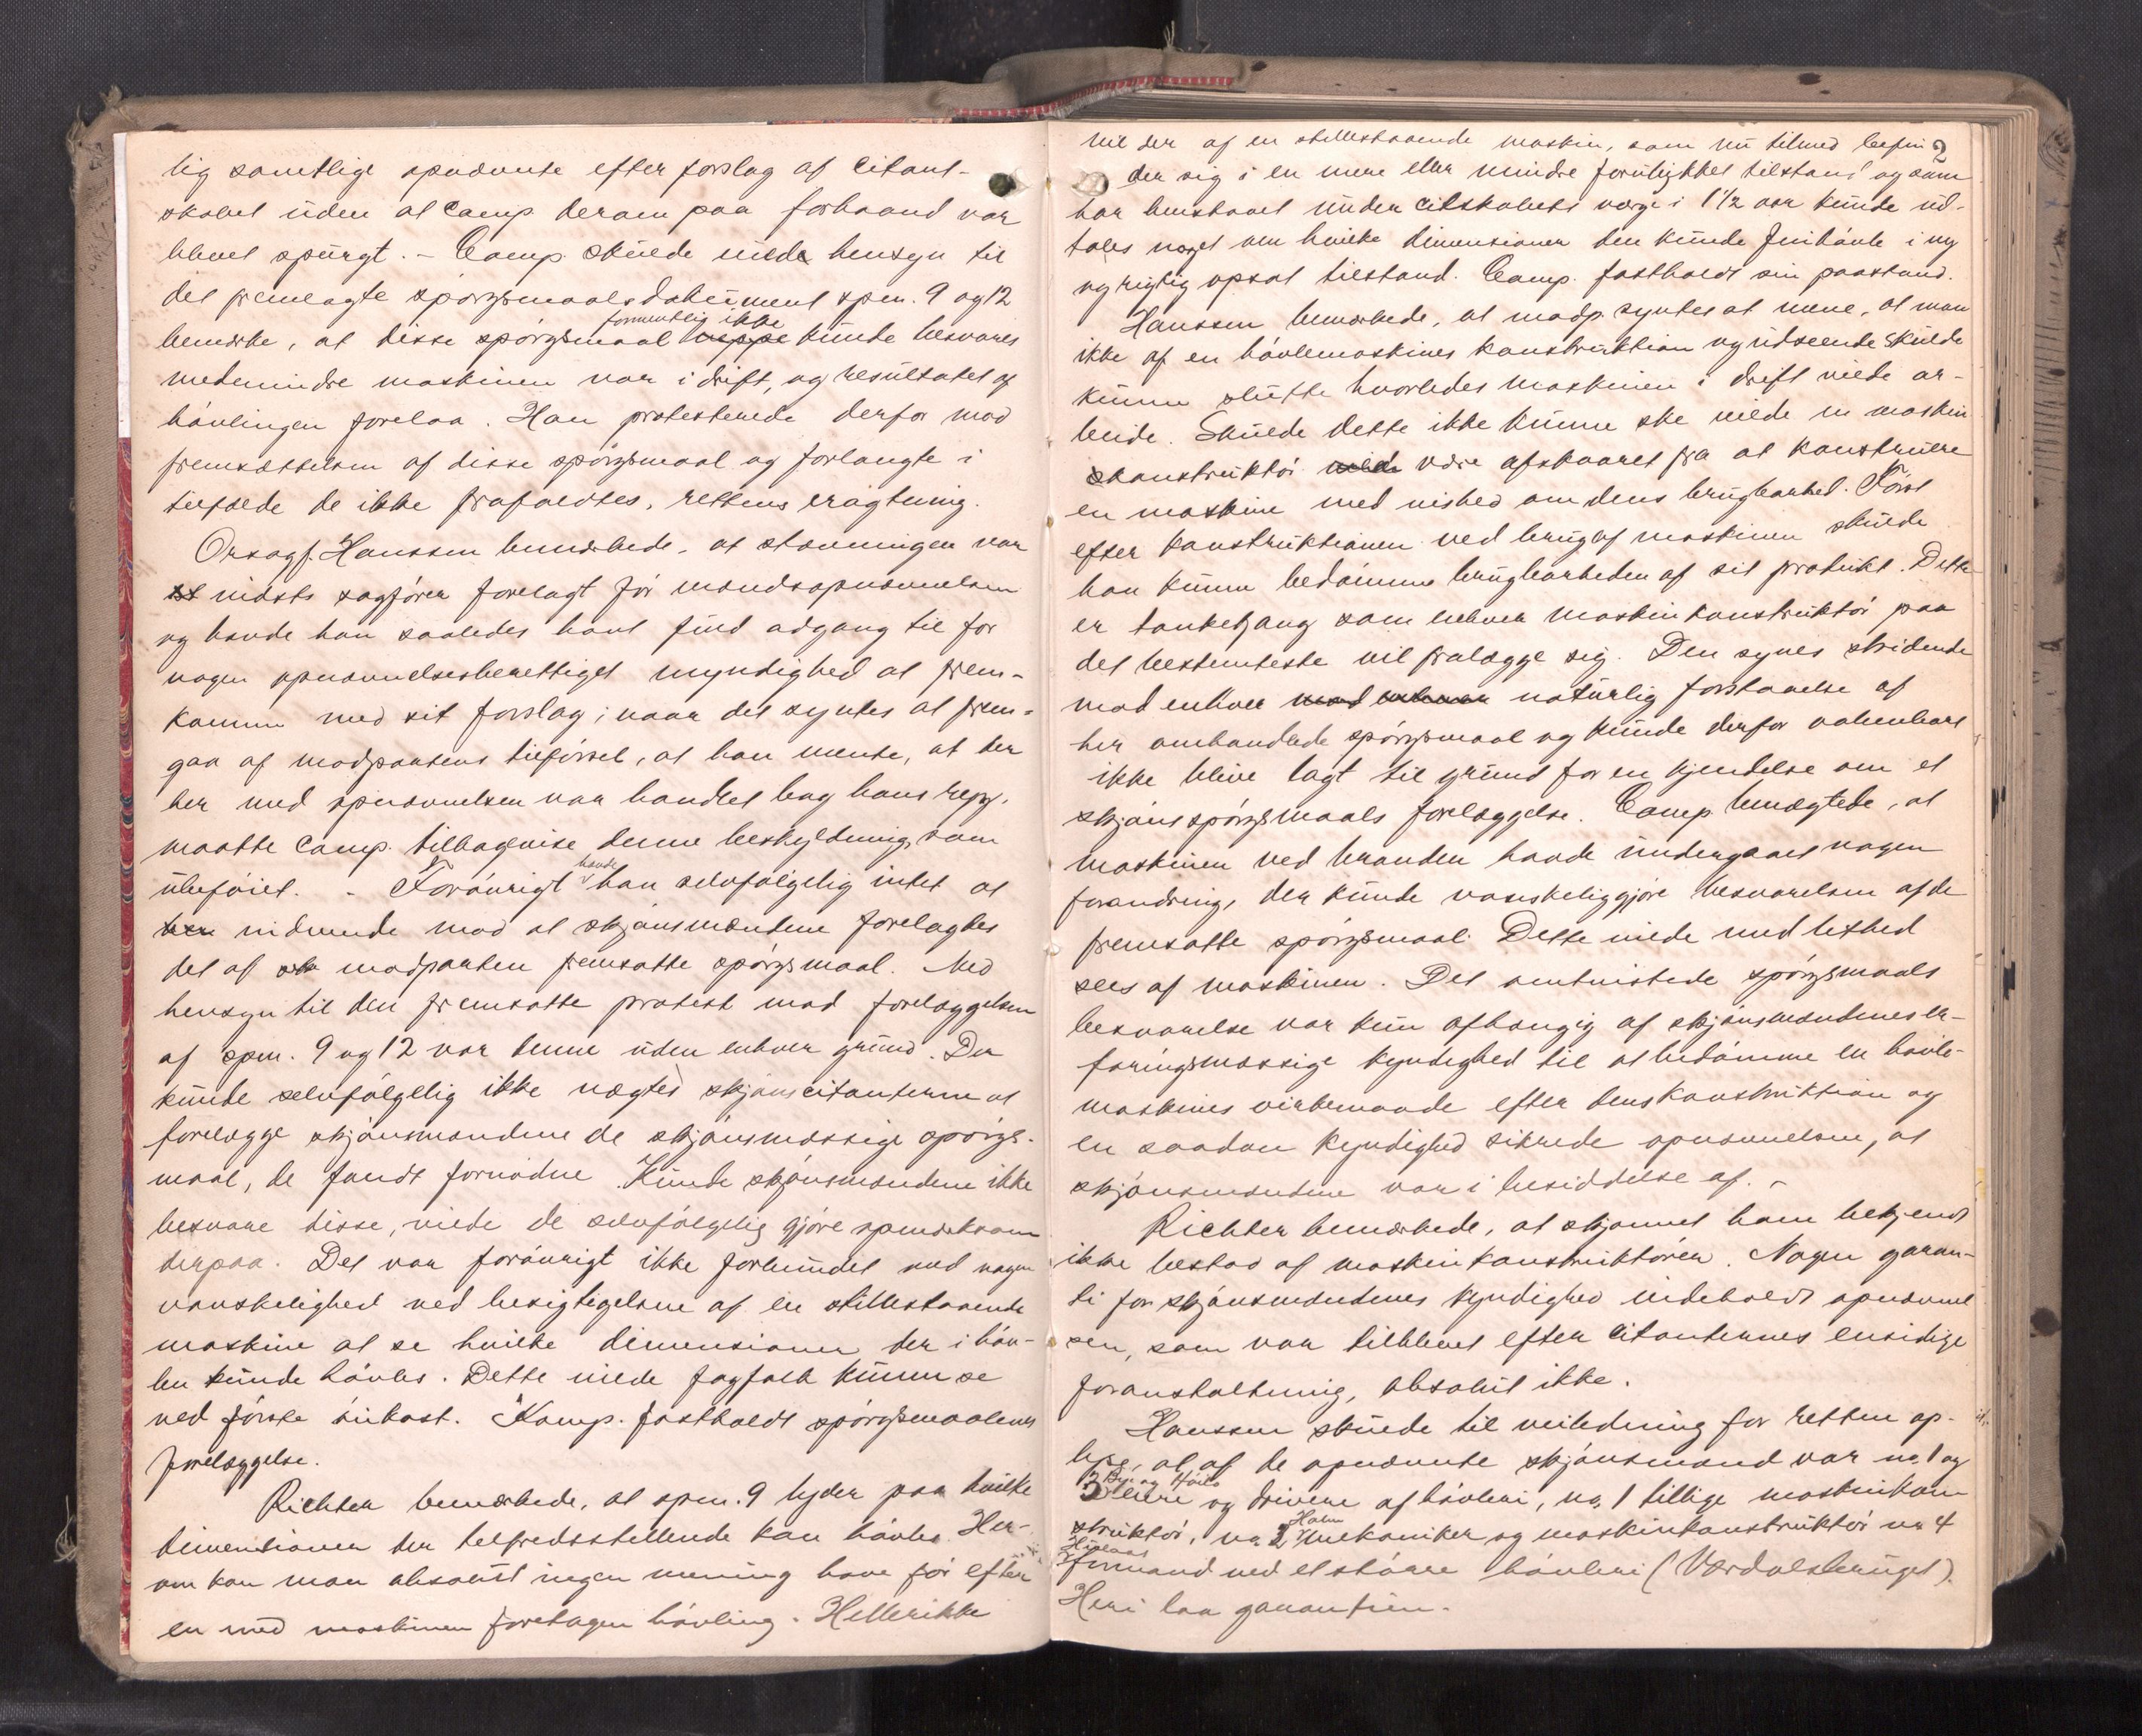 lig samtlige opnævnte efter forslag af citant-
skabet uden at Comp. derom paa forhaand var
blevet spurgt. – Comp. skulde vilde hensyn til
det fremlagte spørgsmaalsdokument spm. 9 og 12
bemærke, at disse spørgsmaal formentlig ikke kunde besvares
medmindre maskinen var i drift, og resultatet af
høvlingen forelaa. Han protesterede derfor mod
fremsættelsen af disse spørgsmaal og forlangte i
tilfælde de ikke frafaldtes, rettens eragtning.
Orsagf. Hanssen bemærkede, at stævningen var
vidsts sagfører forelagt før mandsopnævnelsen
og havde han saaledes havt fuld adgang til for
nogen opnævnelsesberettiget myndighed at frem-
komme med sit forslag; naar det syntes at frem-
gaa af modpartens tilførsel, at han mente, at der
her med opnævnelsen var handlet bag hans rygg,
maatte Comp. tilbagevise denne beskyldning som
ubeføiet. – Forøvrigt havde han selvfølgelig intet at
indvende mod at skjønsmændene forelagdes
det af modparten fremsatte spørgsmaal. Med
hensyn til den fremsatte protest mod forelæggelsen
af spm. 9 og 12 var denne uden enhver grund. Der
kunde selvfølgelig ikke nægtes skjønscitanterne at
forelægge skjønsmændene de skjønsmæssige spørgs-
maal, de fandt fornødne. Kunde skjønsmændene ikke
besvare disse, vilde de selvfølgelig gjøre opmærksom
derpaa. Det var forøvrigt ikke forbundet med nogen
vanskelighed ved besigtigelsene af en stillestaaende
maskine at se hvilke dimensioner der i høv-
len kunde høvles. Dette vilde fagfolk kunne se
ved første øiekast. Komp. fastholdt spørgsmaalenes
forelæggelse.
Richter bemærkede, at spm. 9 lyder paa hvilke
dimensioner der tilfredsstillende kan høvles. Her-
om kan man absolut ingen mening have før efter
en med maskinen foretagen høvling. Heller ikke
2
vil der af en stillestaaende maskin, som nu tilmed befin-
der sig i en mere eller mindre forulykket tilstand og som
har henstaaet under citskabets værge i 1½ aar kunde ud-
tales noget om hvilke dimensioner den kunde finhøvle i ny
og rigtig opsat tilstand. Comp. fastholdt sin paastand.
Hanssen bemærkede, at modp. syntes at mene, at man
ikke af en høvlemaskines konstruktion og udseende skulde
kunne slutte hvorledes maskinen i drift vilde ar-
beide. Skulde dette ikke kunne ske vilde en maskin
konstruktør være afskaaret fra at konstruere
en maskine med vished om dens brugbarhed. Først
efter konstruktionen ved brug af maskinen skulde
han kunne bedømme brugbarheden af sit produkt. Dette
er tankegang som enhver maskinkonstruktør paa
det bestemteste vil fralægge sig. Den synes stridende
mod enhver naturlig forstaaelse af
her omhandlede spørgsmaal og kunde derfor aabenbart
ikke blive lagt til grund for en kjendelse om et
skjønsspørgsmaals forelæggelse. Comp. benægtede, at
maskinen ved branden havde undergaaet nogen
forandring, der kunde vanskeliggjøre besvarelsen af de
fremsatte spørgsmaal. Dette vilde med lethed
sees af maskinen. Det omtvistede spørgsmaals
besvarelse var kun afhængig af skjønsmændenes er-
faringsmæssige kyndighed til at bedømme en høvle-
maskines virkemaade efter dens konstruktion og
en saadan kyndighed sikrede opnævnelsen, at
skjønsmændene var i besiddelse af. –
Richter bemærkede, at skjønnet ham bekjendt
ikke bestod af maskinkonstruktører. Nogen garan-
ti for skjønsmændenes kyndighed indeholdt opnævnel
sen, som var tilblevet efter citanternes ensidige
foranstaltning, absolut ikke.
Hanssen skulde til veiledning for retten op-
lyse, at af de opnævnte skjønsmænd var no. 1 og
3 Bye og Høilo eiere og drivere af høvleri, no. 1 tillige maskinkon
struktør, no. 2 Holm mekaniker og maskinkonstruktør no 4
formand ved et større høvleri (Værdalsbruget).
Heri laa garantien.